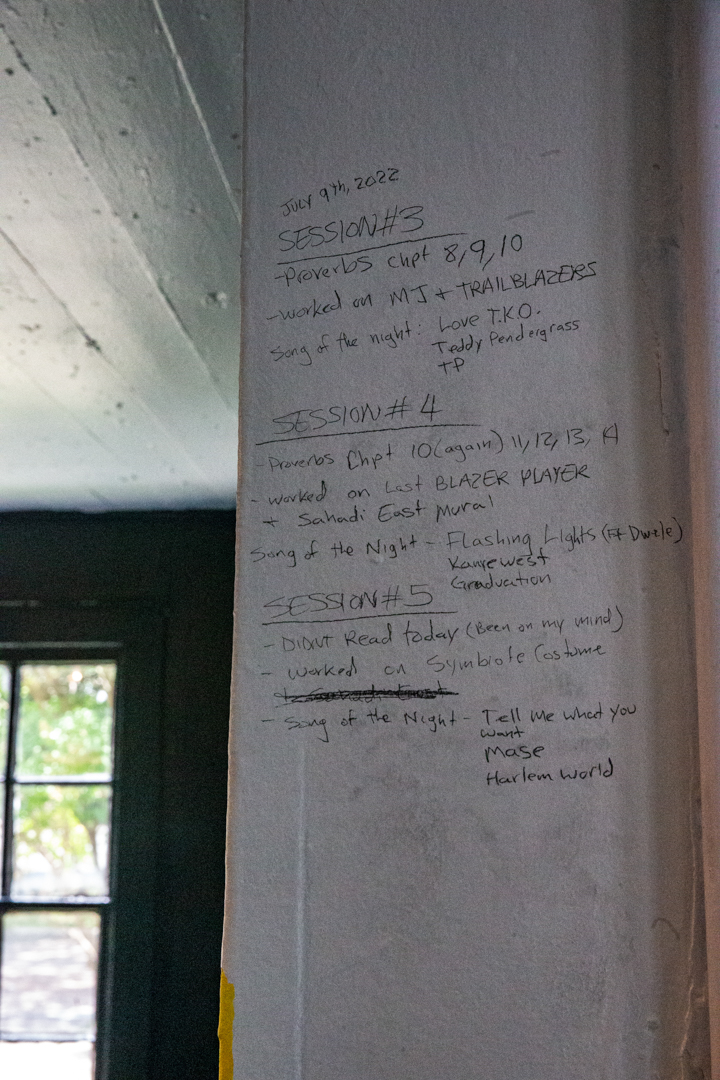 JULY 9th, 2022
SESSION#3
-Proverbs Chpt 8,9,10
-worked on MJ + TRAILBLAZERS
Song of the night: Love T.K.O.
Teddy Pendergrass
TP
SESSION#4
-Proverbs Chpt 10(again) 11, 12, 13, 14
-worked on Last BLAZER PLAYER
+ Sahadi East Mural
Song of the Night - Flashing Lights (Ft Dwele)
Kanye west
Graduation
SESSION#5
- DIDNT Read today (Been on my mind)
- worked on Symbiote Costume
- Song of the Night - Tell me what you
want
Mase
Harlem World